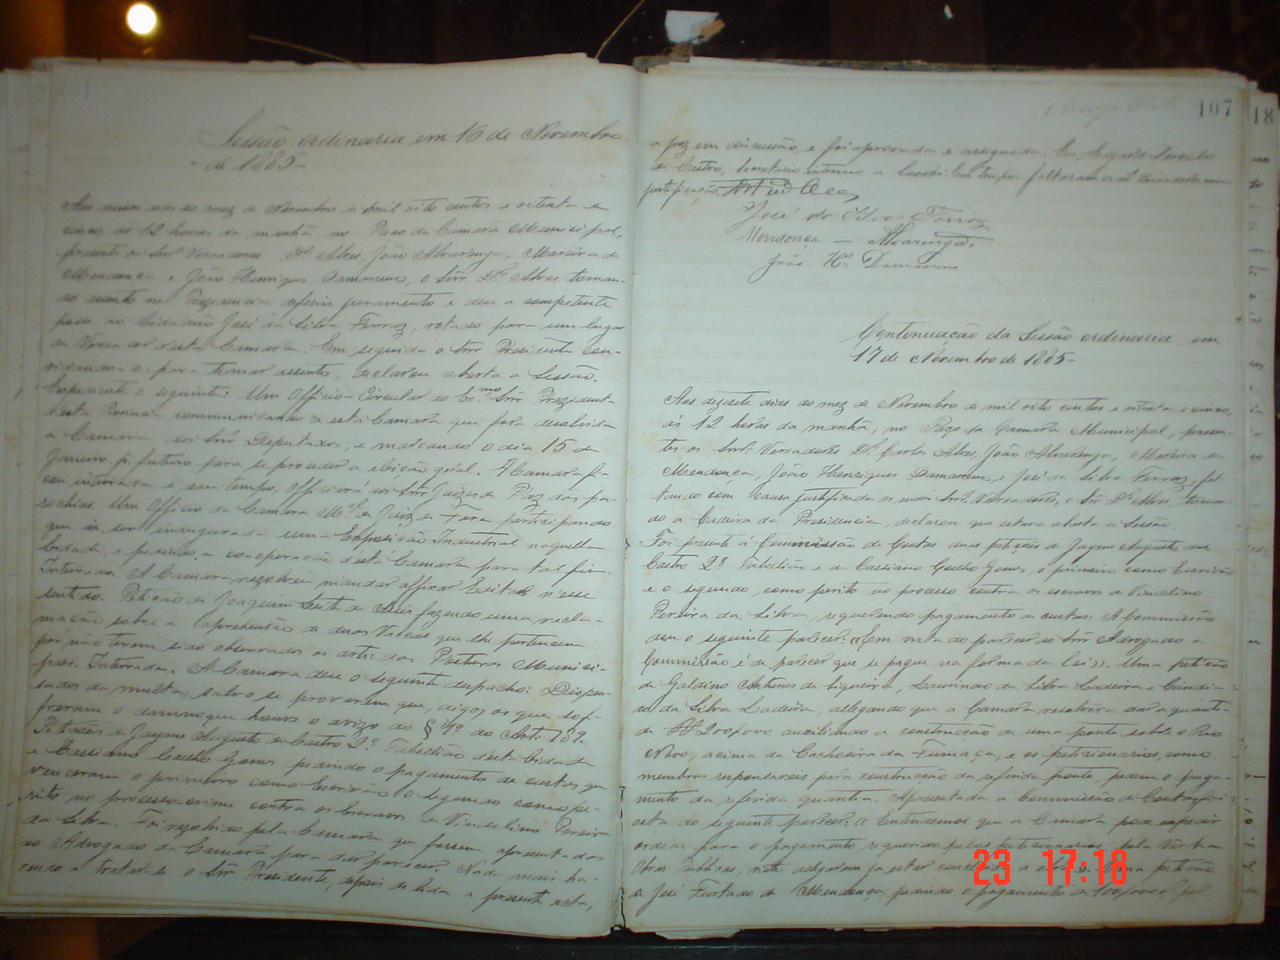 Sessão ordinaria em 16 de Novembro
de 1885
mez de Novembro de mil oito centos e oitenta e
cinco, ás 12 horas da manhã, no Paço da Camara Municipal,
presentes os Snrs. Vereadores Dr. Alves, João Alvarenga, Moreira de
Mendonça e João Henriques Damasceno, o Snr. Dr. Alves toman-
do assento na Prezidencia deferiu juramento e deu a competente
posse ao Cidadão José da Silva Ferraz, votado para um lugar
de Vereador desta Camara. Em seguida o Snr. Presidente con-
vidando-o para tomar assento, declarou aberta a Sessão.
Expediente o seguinte: Um Officio-Circular do Exmo. Snr. Prezidente
desta Provincia communicando a esta Camara que fora dissolvida
a Camara dos Snrs. Deputados, e marcando o dia 15 de
Janeiro p. futuro para se proceder a eleição geral. A Camara fi-
cou inteirada e, em tempo, officiará aos Snrs. Juizes de Paz das pa-
rochias. Um Officio da Camara Mal. de Juiz de Fora participando
que ia ser inaugurada uma Exposição Industrial naquella
Cidade, e pedindo a co-operação desta Camara para tal fim.
Inteirada. A Camara resolveu mandar affixar Editaes n'esse
sentido. Petição de Joaquim Leite de fazendo uma recla-
mação sobre a aprehensão de duas vaccas que lhe pertencem
por não terem sido observados os arts. das Posturas Munici-
paes. Inteirada. A Camara deu o seguinte despacho: Dispen-
sados da multa, salvo se provarem que, digo, os que sof-
freram o damno que houve o avizo do § 4º do Art. 189.
Petições de Jayme Augusto de Castro 2º Tabellião desta Cidade
e Cassiano Coelho Gomes pedindo o pagamento de custas, que
venceram o primeiro como Escrivão e o segundo como pe-
rito no processo-crime contra os Escravos de Vindelino Pereira
da Silva. Foi resolvido pela Camara que fossem apresentadas
ao Advogado da Camara para dar parecer. Nada mais ha-
vendo a tratar-se o Snr. Presidente, depois de lida a presente acta,
107
a poz em discussão, e foi aprovada e assignada. Eu,
de Castro, Secretario interino a escrevi. Em tempo: faltaram os mais Vereadores com
justificação.
José da Silva Ferraz
Mendonça — Alvarenga
João He. Damasceno
Contenuação da Sessão ordinaria, em
17 de Novembro de 1885
Aos dezesete dias do mez de Novembro de mil oito centos e oitenta e cinco,
ás 12 horas da manhã, no Paço da Camara Municipal, presen-
tes os Snrs. Vereadores Dr. Carlos Alves, João Alvarenga, Moreira de
Mendonça, João Henriques Damasceno, e José da Silva Ferraz, fal-
tando com causa justificada os mais Snrs. Vereadores, o Snr. Dr. Alves, toman-
do a Cadeira da Presidencia, declarou que estava aberta a Sessão.
Foi presente á Commissão de Contas duas petições de Jayme Augusto de
Castro 2º Tabellião e de Cassiano Coelho Gomes, o primeiro como Escrivão
e o segundo, como perito no processo contra os escravos de Vindelino
Pereira da Silva, requerendo pagamento de custas: A Commissão
deu o seguinte parecer: «Em vista do parecer do Snr. Advogado a
Commissão é de parecer que se pague na forma da lei». Uma petição
de Galdino Antunes de Siqueira, Laurindo da Silva Ladeira e Candi-
do da Silva Ladeira, allegando que a Camara resolvera dar a quantia
de 200$000 auxiliando a construcção de uma ponte sobre o Rio
Novo, acima da Cachoeira da Fumaça, e os peticionarios, como
membros responsaveis para construcção da referida ponte, pedem o paga-
mento da referida quantia. Apresentada á Commissão de Contas foi
esta do seguinte parecer: «Entendemos que a Camara pode expedir
ordem para o pagamento requerido pelos peticionarios pela Verba
Obras Publicas, petição
de José Furtado de Mendonça pedindo o pagamento de 100$000,
23 17:18